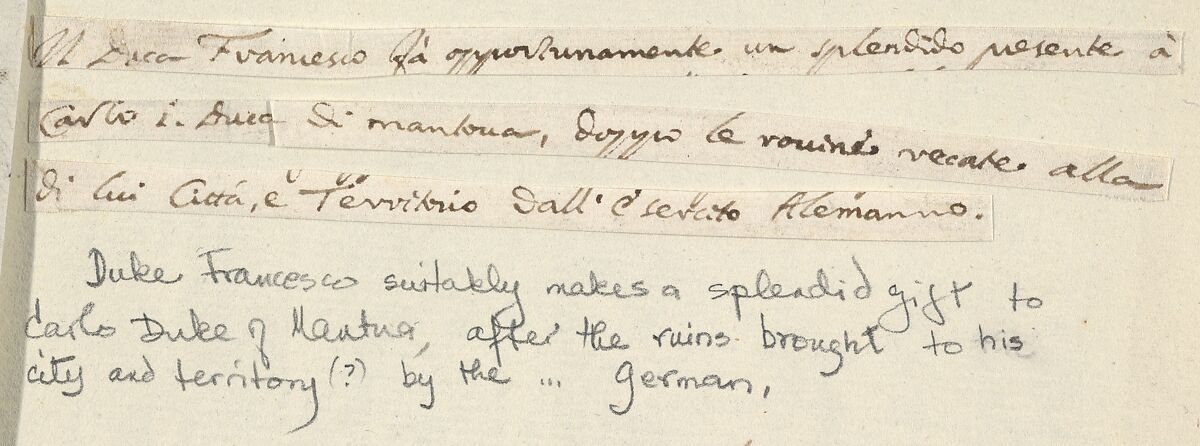 Il Duca Francesco fà opportunamente un splendido presente à
Carlo I. Duca di mantova, doppo le rovine recate alla
di lui Cittá, e Territrio dall' Esercito Alemanno.
Duke Francesco suitably makes a splendid gift to
Carlo Duke of Mantua, after the ruins brought to his
city and territory (?) by the ... German,